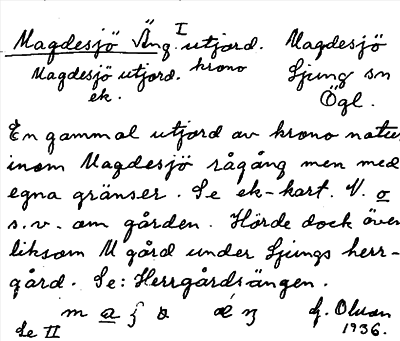 Magdesjö Äng. I utjord. Magdesjö
Magdesjö utjord. krono Ljung sn
ek. Ögl.
En gammal utjord av krono natur
inom Magdesjö rågång men med
egna gränser. Se ek-kart. V. o
s.v. om gården. Hörde dock även
liksom M gård under Ljungs herr-
gård. Se: Herrgårdsängen.
m a
Se II 1936.